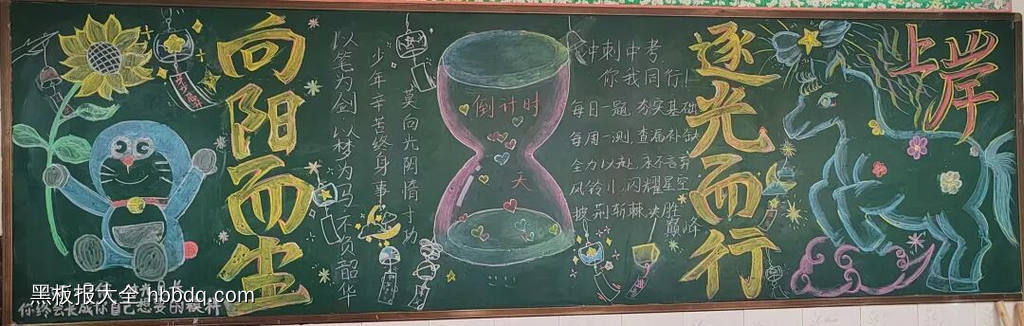 向阳而生
以笔为剑 以梦为马 不负韶华
少年辛苦终身事
莫向光阴惰寸功
倒计时
天
冲刺中考
你我同行!
每日一题,夯实基础
每周一测,查漏补缺
全力以赴,永不言弃
风铃小,闪耀星空
披荆斩棘 决胜
巅峰
逐光而行
上岸
你终会长成你自己想要的模样
黑板报大全 hbbdq.com